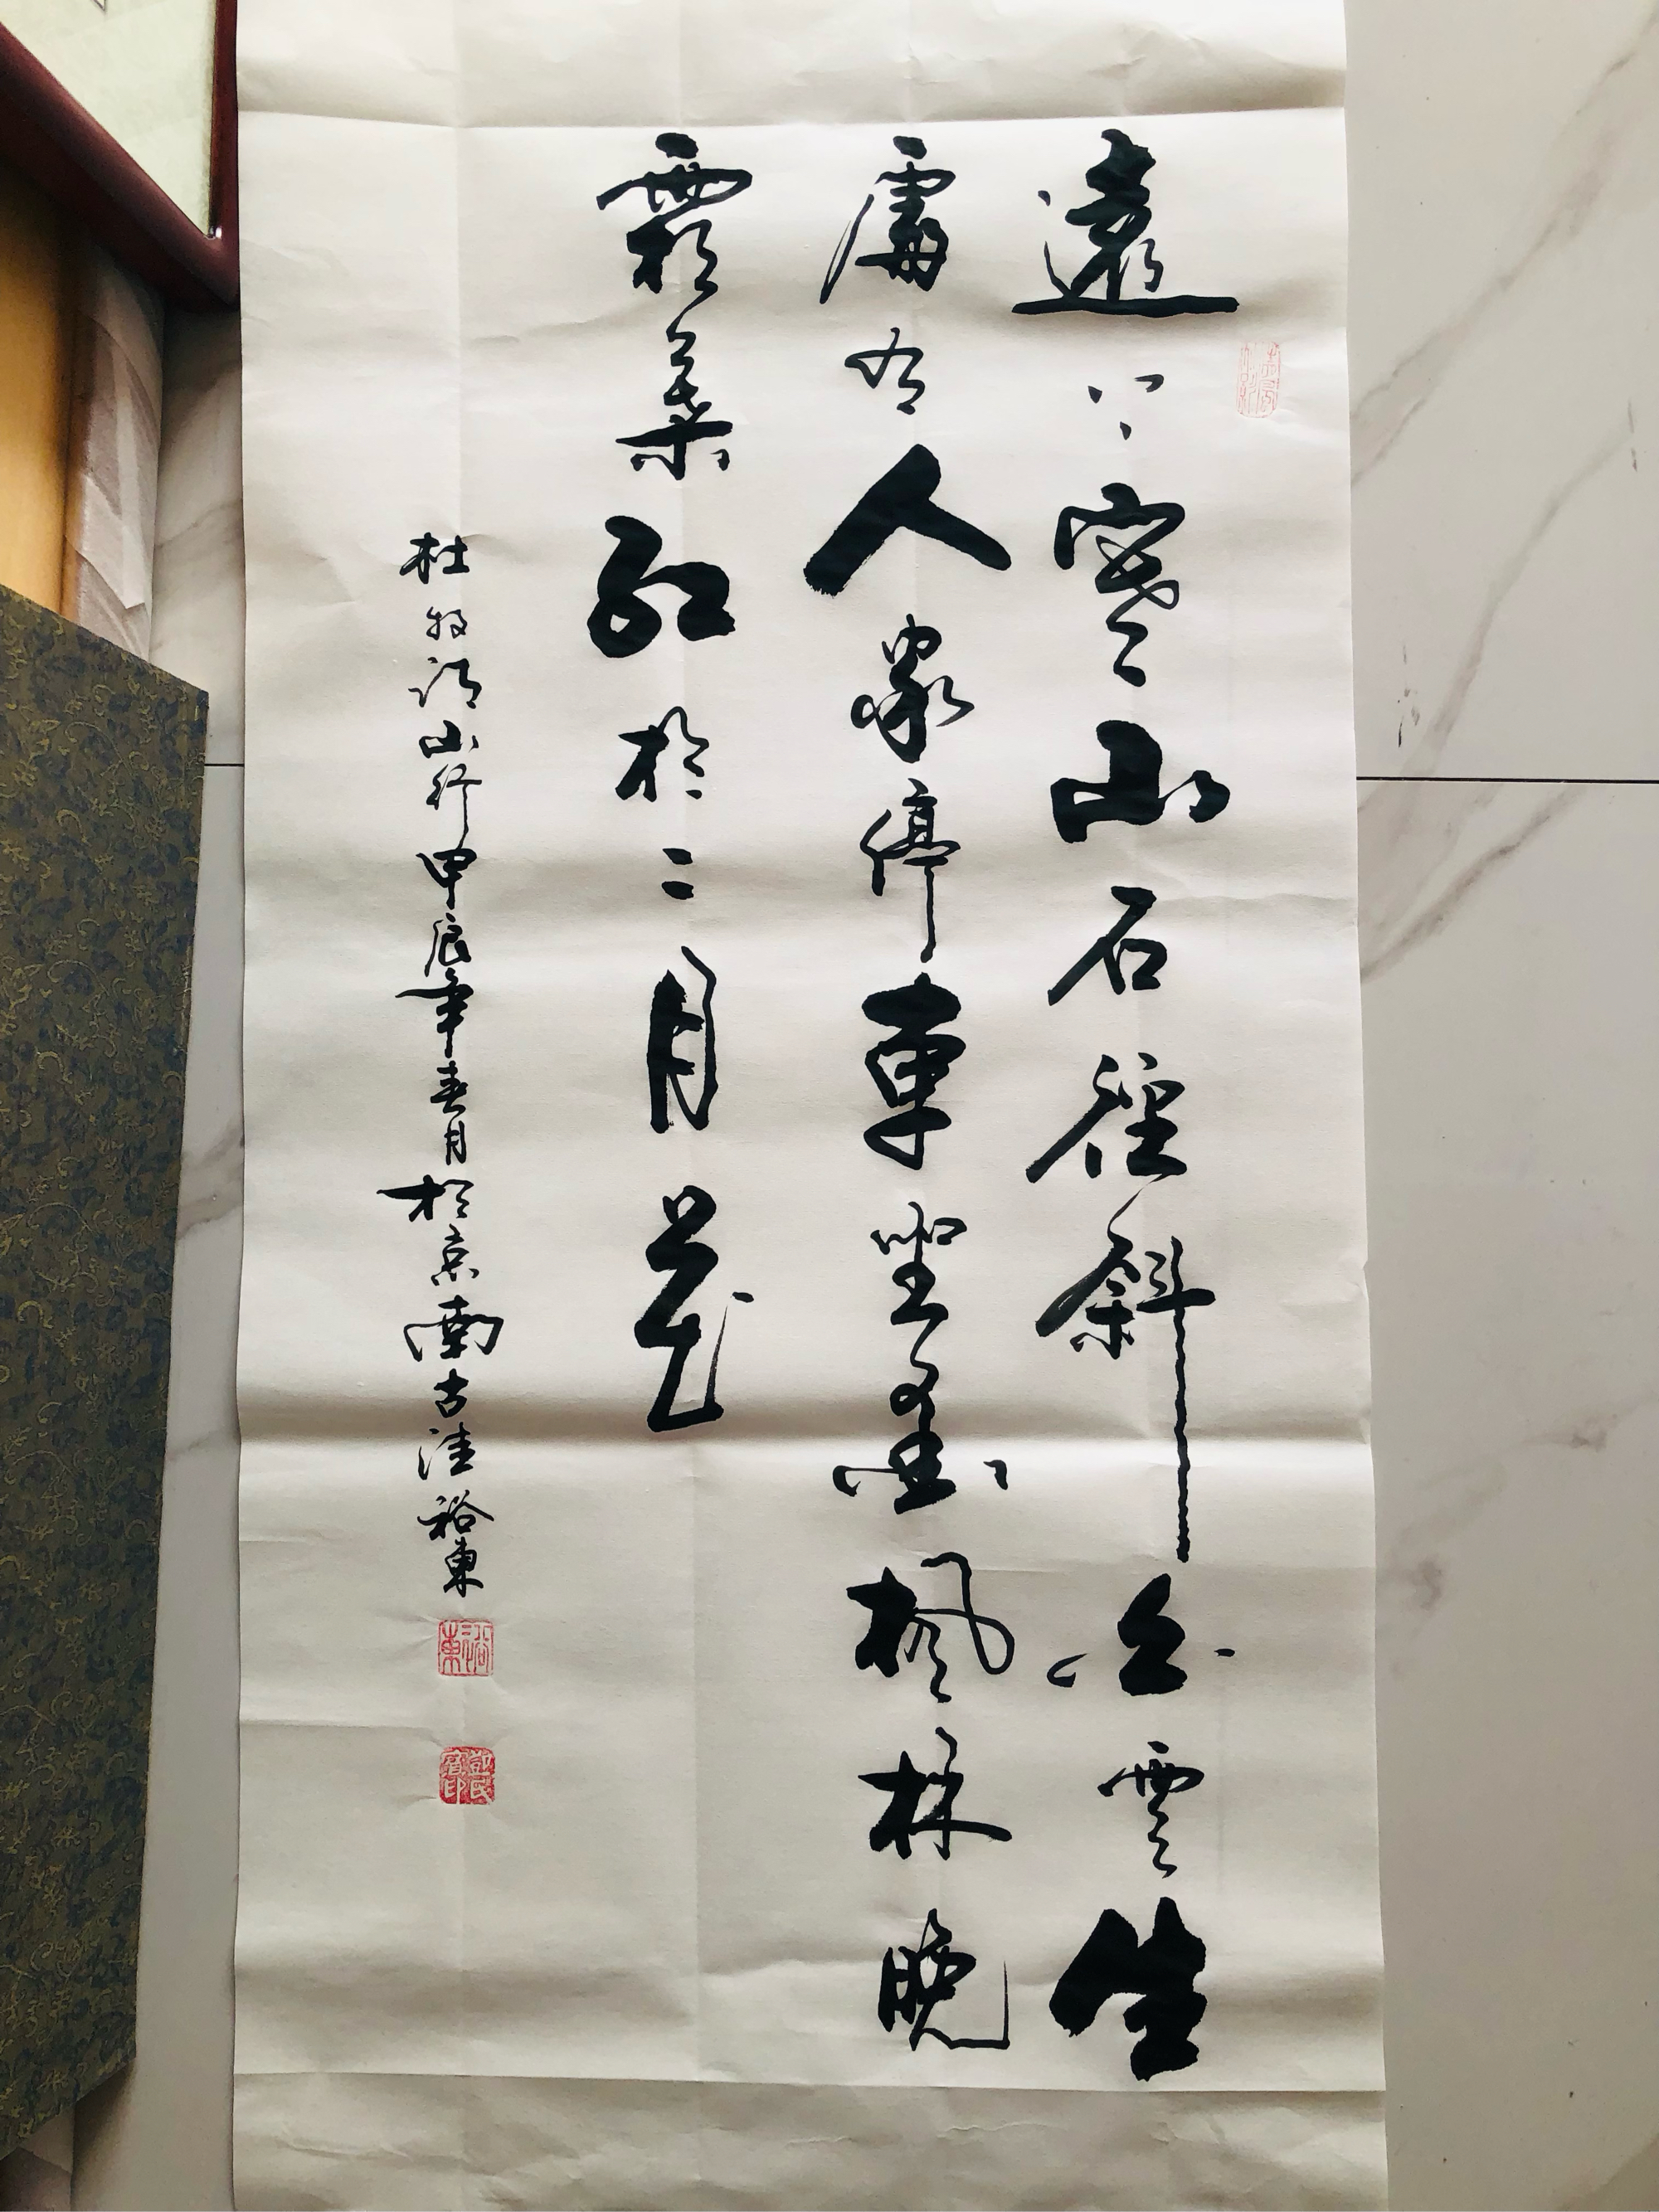 遠上寒山石徑斜白雲生
處有人家停車坐愛楓林晚
霜葉紅於二月花
杜牧詩山行甲辰年春月於京南古洼裕東
裕東